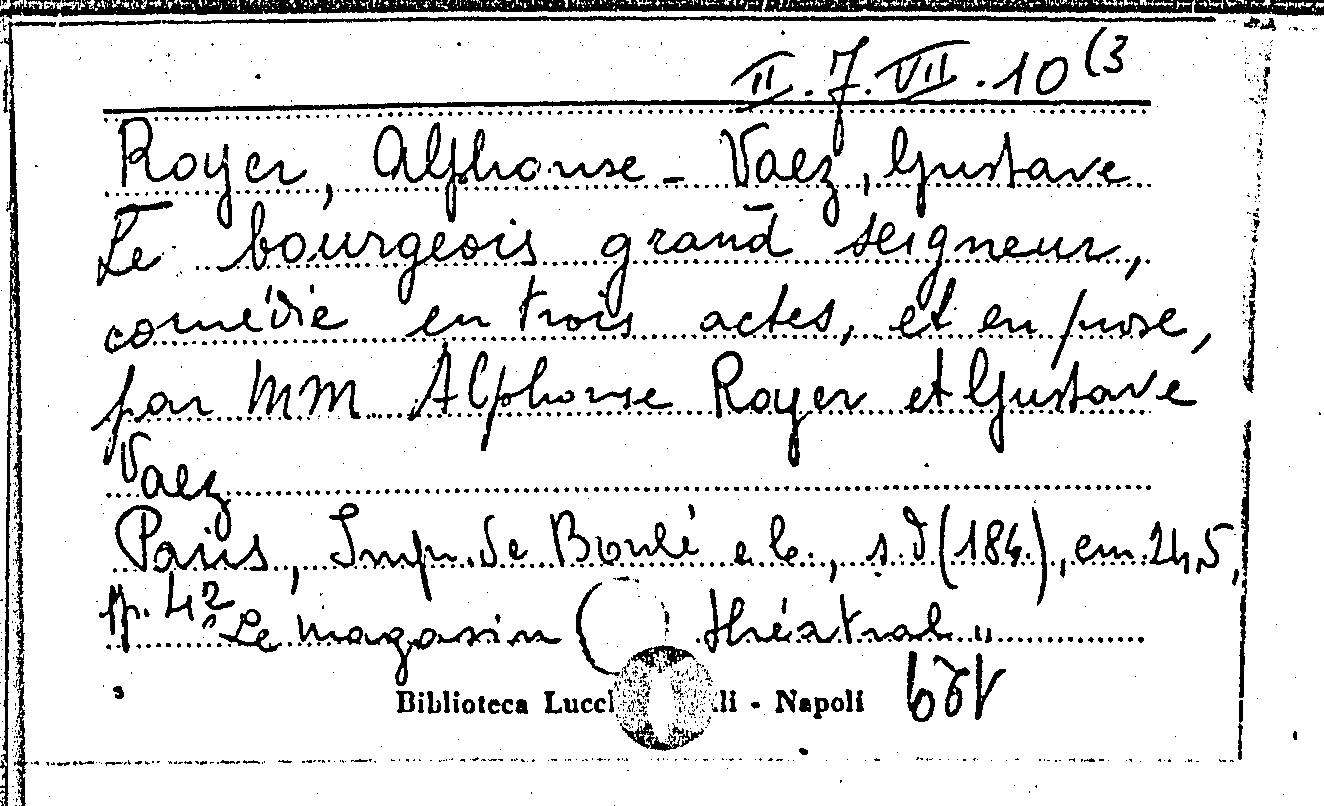 II.7.VII.10(3
Royer, Alphonse - Vaez, Gustave
Le bourgeois grand seigneur,
comédie en trois actes, et en prose,
par MM Alphonse Royer et Gustave
Vaez
Paris, Imp. de Boulé e C., s.d (184.), cm. 24,5,
pp. 42 "Le magasin théatral"
Biblioteca Lucchesi Palli - Napoli